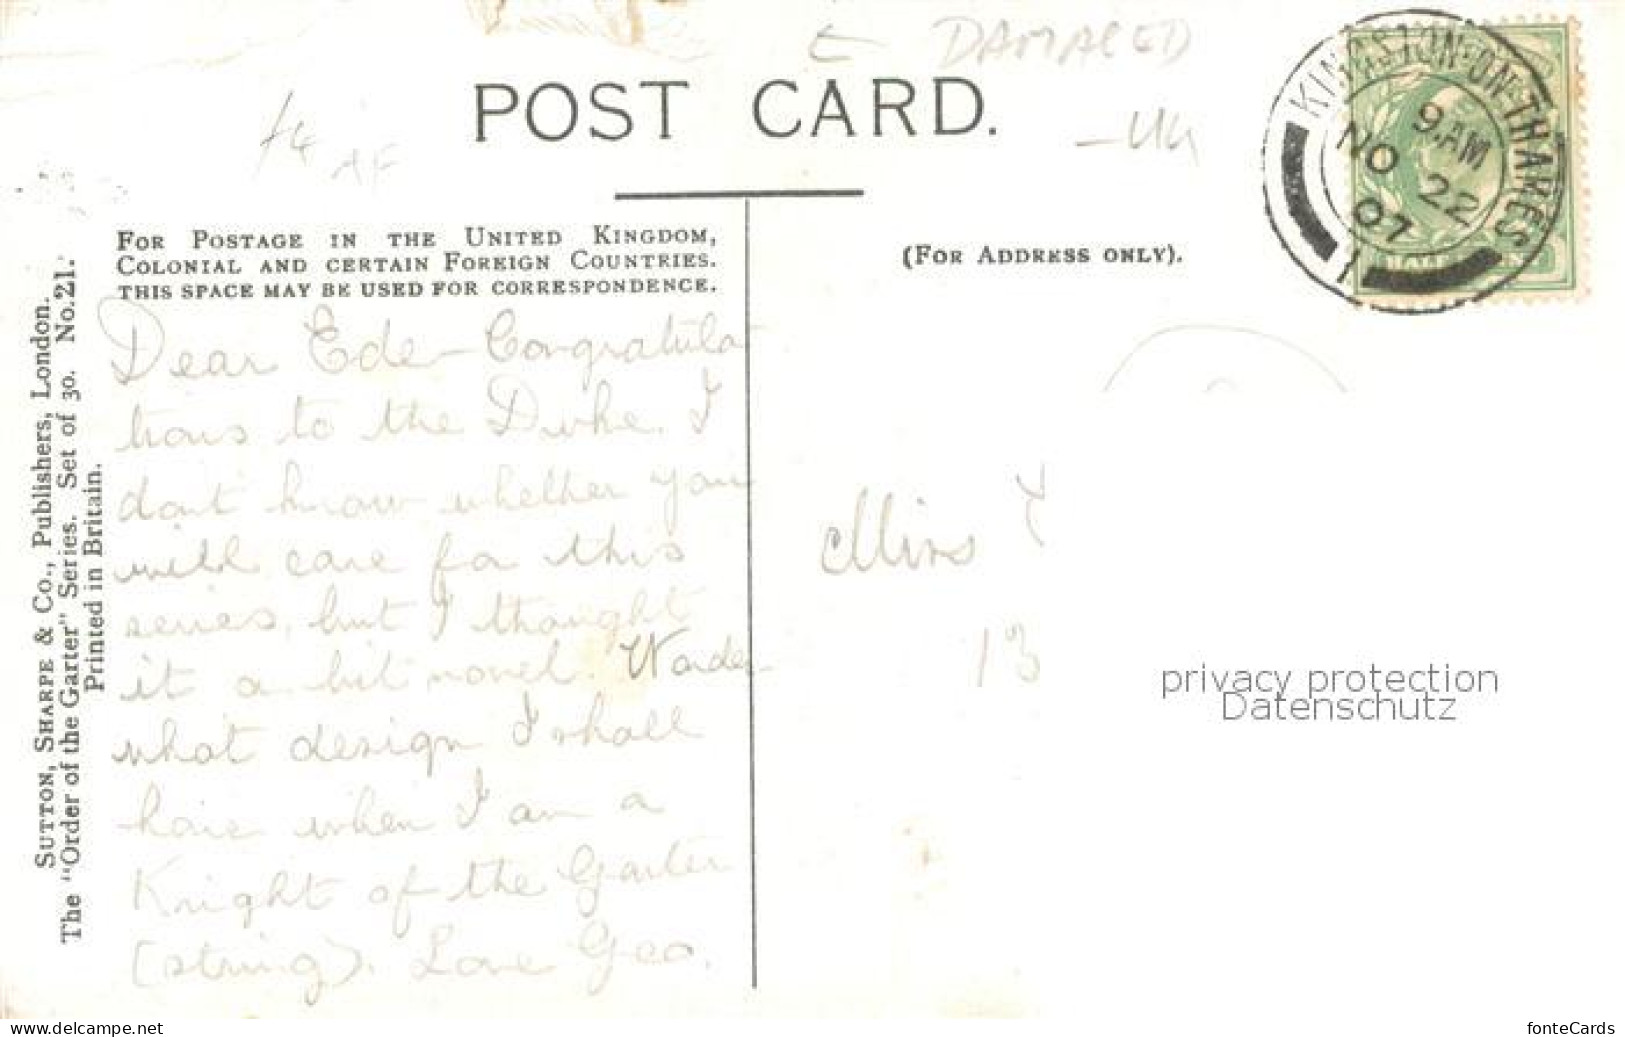 E DAMAGED
POST CARD.
KINGSTON-ON-THAMES
9.AM
NO 22
07
1
FOR POSTAGE IN THE UNITED KINGDOM,
COLONIAL AND CERTAIN FOREIGN COUNTRIES.
THIS SPACE MAY BE USED FOR CORRESPONDENCE.
(FOR ADDRESS ONLY).
SUTTON, SHARPE & Co., Publishers, London.
The "Order of the Garter" Series. Set of 30. No. 21.
Printed in Britain.
Dear Ede - Congratula
tions to the Duke. I
dont know whether you
will care for this
series, but I thought
it a bit novel. Wonder
what design I shall
have when I am a
Knight of the Garter
(string). Love Geo.
Miss
13
privacy protection
Datenschutz
www.delcampe.net
fonteCards